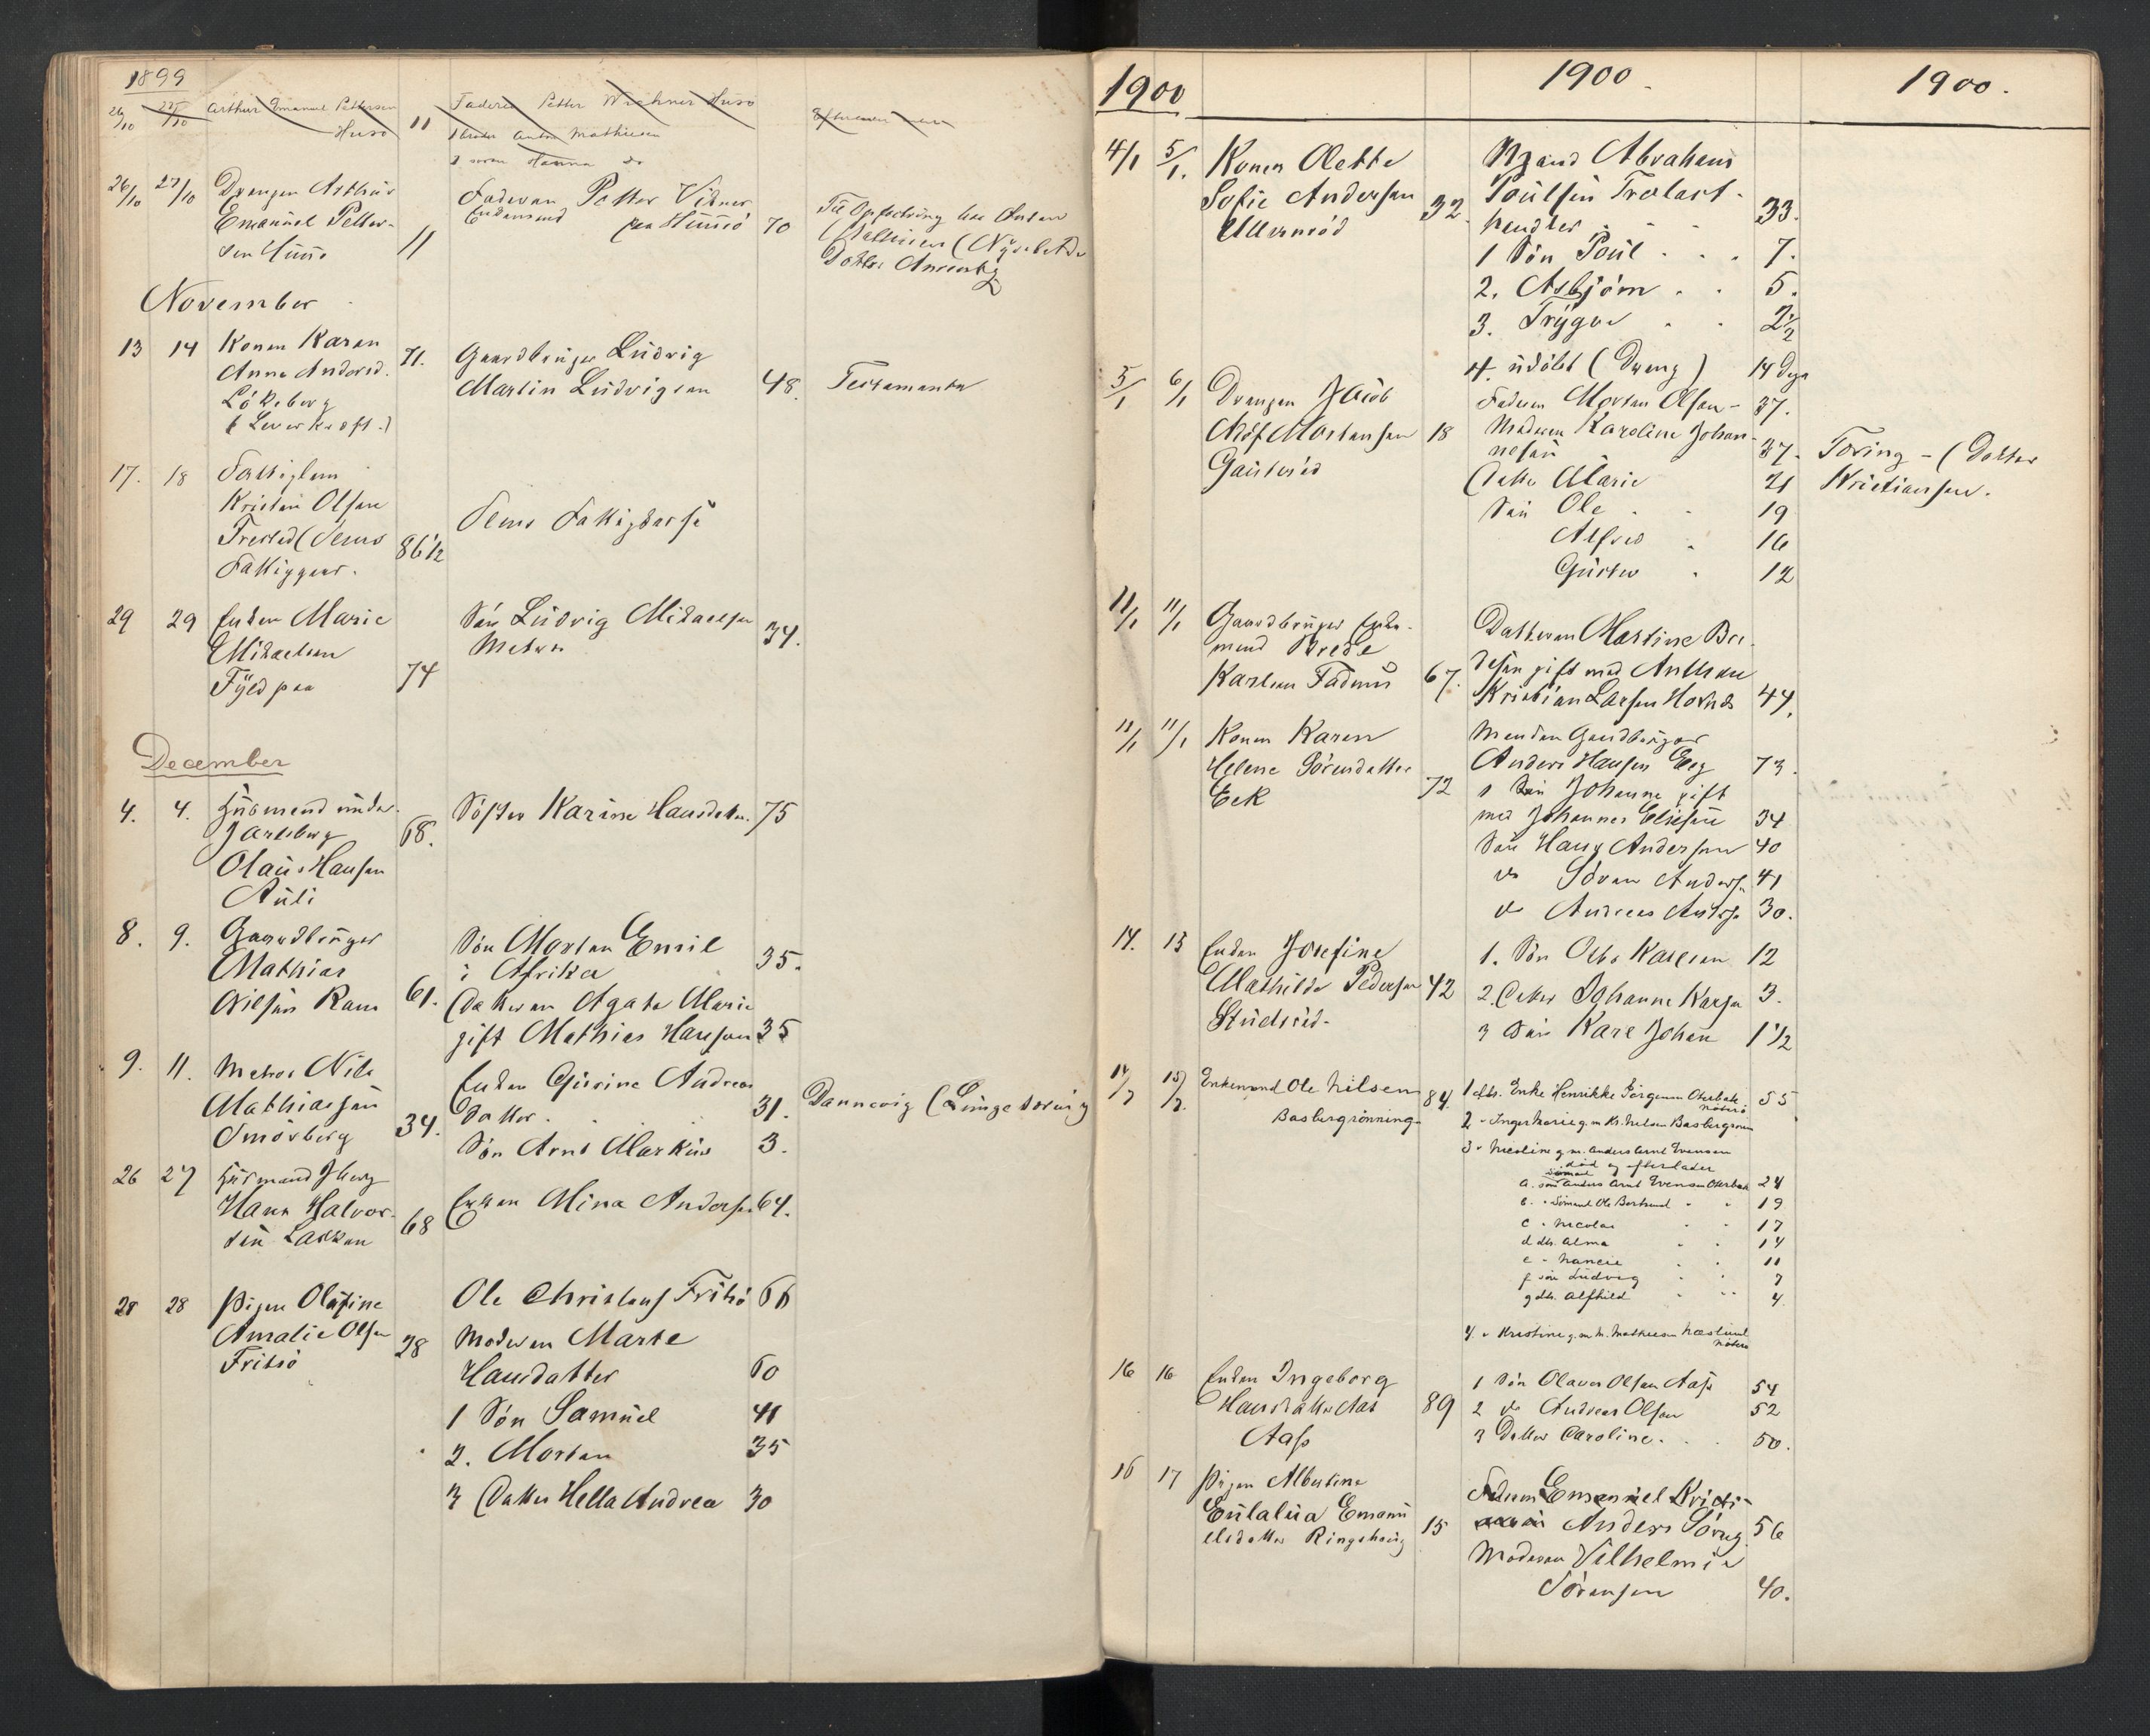 1899
26/10 27/10 Arthur Emanuel Pettersen 11 Faderen Petter Wichner Husø
Husø 1 broder Anton Mathiesen
2 søren Hanna do
26/10 27/10 Drengen Arthur Faderen Petter Vidner
Emanuel Petter- 11 Enkemand paa Husø 70
sen Husø
November
13 14 Konen Karen 71. Gaardbruger Ludvig
Anna Andersd. Martin Ludvigsen 48. Testamente
Løkeberg
17. 18 Fattiglem
Kristen Olsen
Trested (Sems 86 1/2 Sems Fattigkasse
Fattiggaar.
29 29 Enken Marie Søn Ludvig Mikaelsen 34.
Mikaelsen 74 Matros
Fyldpaa
December
4. 4. Husmand under 68. Søster Karine Hansdatter 75
Jarlsberg
Olaus Hansen
Auli
8. 9. Gaardbruger Søn Morten Emil 35.
Mathias i Afrika
Nilsen Ram 61. Datteren Agate Marie
gift Mathias Hansen 35
9. 11. Matros Nils Enken Gurine Andreas
Mathiassen 34. datter . . 31. Dannevig
Smørberg Søn Arnt Markus 3.
26 27 Husmand
Hans Halvor- 68 Enken Mina Anders. 64.
sen Bakken
28 28 Pigen Olufine Ole Christens Fritsø 66
Amalie Olsen 28 Moderen Marte
Fritsø Hansdatter 60
1 Søn Samuel 41
2. Morten 35
3 Datter Hella Andrea 30
1900 1900. 1900.
4/1 5/1. Konen Olette Mand Abraham
Sofie Andersen 32. Poulsen Trælast-
Ullernrød handler . . 33.
1 Søn Poul . . . 7.
2. Asbjørn . . 5.
3. Trygve . . 2 1/2
4. udøbt (Dreng) 14 Dage
5/1 6/1 Drengen Jacob Faderen Morten Olsen - 37.
Mortensen 18 Moderen Karoline Johan-
Gauterød nesen 37.
Datter Marie 21
Søn Ole . . 19
Alfred . 16
Gustav . 12
11/1 11/1 Gaardbruger Enke- Datteren Martine Bre-
mand Brede desen gift med Anthon
Karlsen 67. Kristian Larsen 44.
11/1 11/1 Konen Karen Manden Gardbruger
Helene Sørensdatter 72 Anders Hansen Eeg 73.
Eek 1 Johanne gift
med Johannes Eliesen 34
Søn Hans Andersen 40
do Søren Anders. 41
do Andreas Anders. 30.
14. 15 Enken Josefine 1. Søn Otto Karlsen 12
Mathilde Pedersen 42 2. Datter Johanne Karlsen 3.
Studsrød. 3 Søn Karl Johan 1 1/2
Enkemand Ole Nilsen 84. 1 dtr. Enke Henrikke Jørgensen Oterbæk 55
Basbergrønningen Nøterø
2 " Inger Marie g. m. Kr. Nilsen Basbergrønn
3 " Nicoline g. m. Anders Arnt Evensen
død og efterlader
a. søn Anders Arnt Evensen Oterbæk 24
b. " Sømand Ole Bertrand " " 19
c " Nicolai " " 17
d dtr. Alma " " 14
e " " " 11
f søn Ludvig " " 7
g dtr. Alfhild " " 4.
4. " Kristine g. m. M. Mathiesen
Nøterø
16 16 Enken Ingeborg 1 Søn Olaves Olsen Aas 54
Hansdatter 89 2 do Andreas Olsen 52
Aass 3 Datter Caroline. . . 50.
16 17 Pigen Albertine Faderen Emanuel Kristi-
Eulalia Emanu 15 Anders 56
elsdatter Ringshaug Moderen Vilhelmine
Sørensen 40.